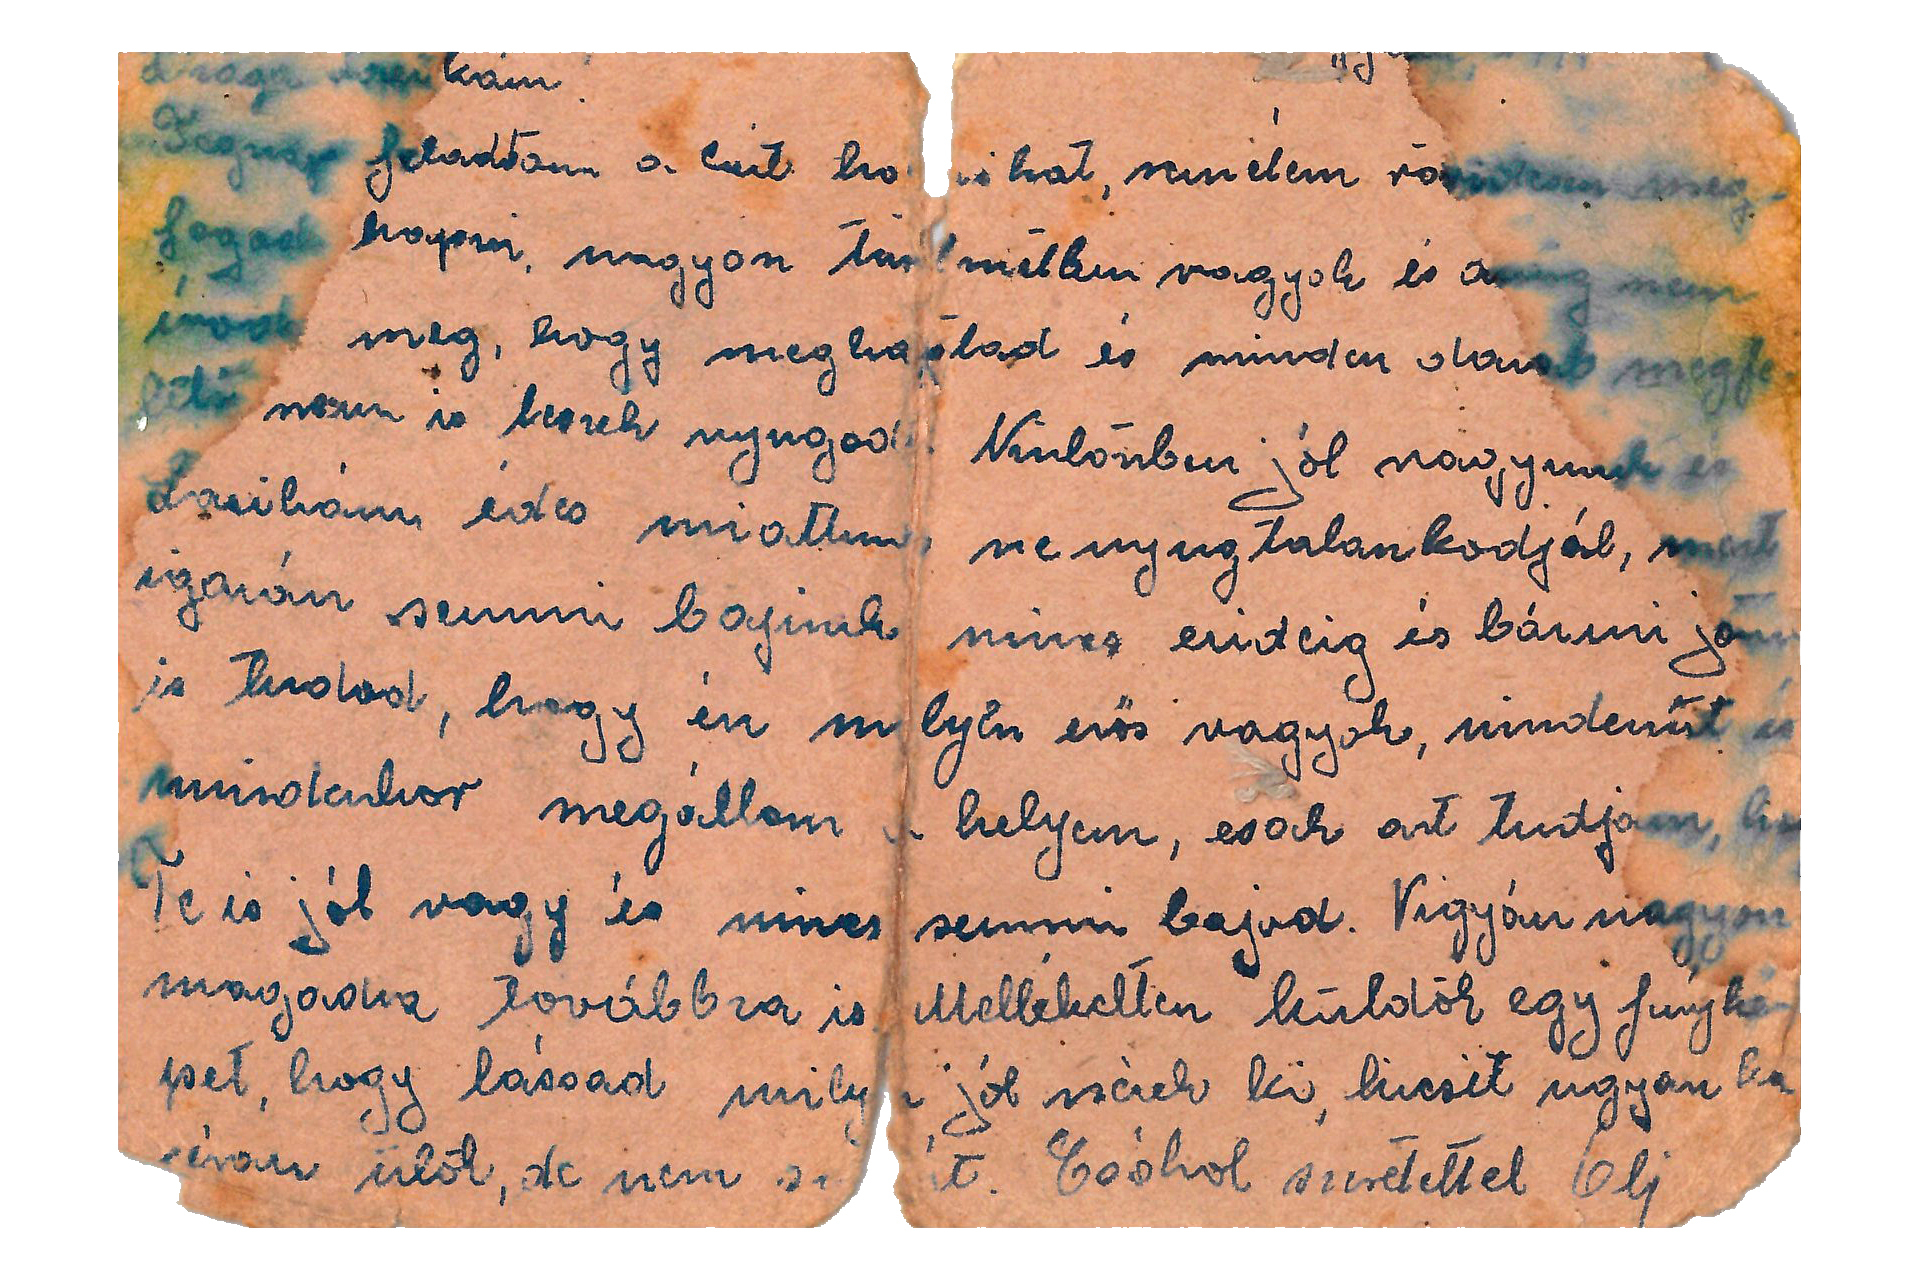 Drága Lacikám!
Tegnap feladtam a cuit ho is hat, remélem röviden meg
fogod kapni, nagyon türelmetlen vagyok és amíg nem
írod meg, hogy megkaptad és minden darab megfe
lelő nem is leszek nyugodt. Különben jól vagyunk és
Lacikám édes miattunk ne nyugtalankodjál, mert
igazán semmi bajunk nincs eddig és bármi jön
is tudod, hogy én milyen erős vagyok, mindenütt és
mindenkor megállom a helyem, csak azt tudjam, ho
Te is jól vagy és nincs semmi bajod. Vigyázz nagyon
magadra továbbra is. Mellékelten küldök egy fényké
pet, hogy lássad milyen jól nézek ki, kicsit ugyan ka
ülök, de nem Csókol szeretettel Olj